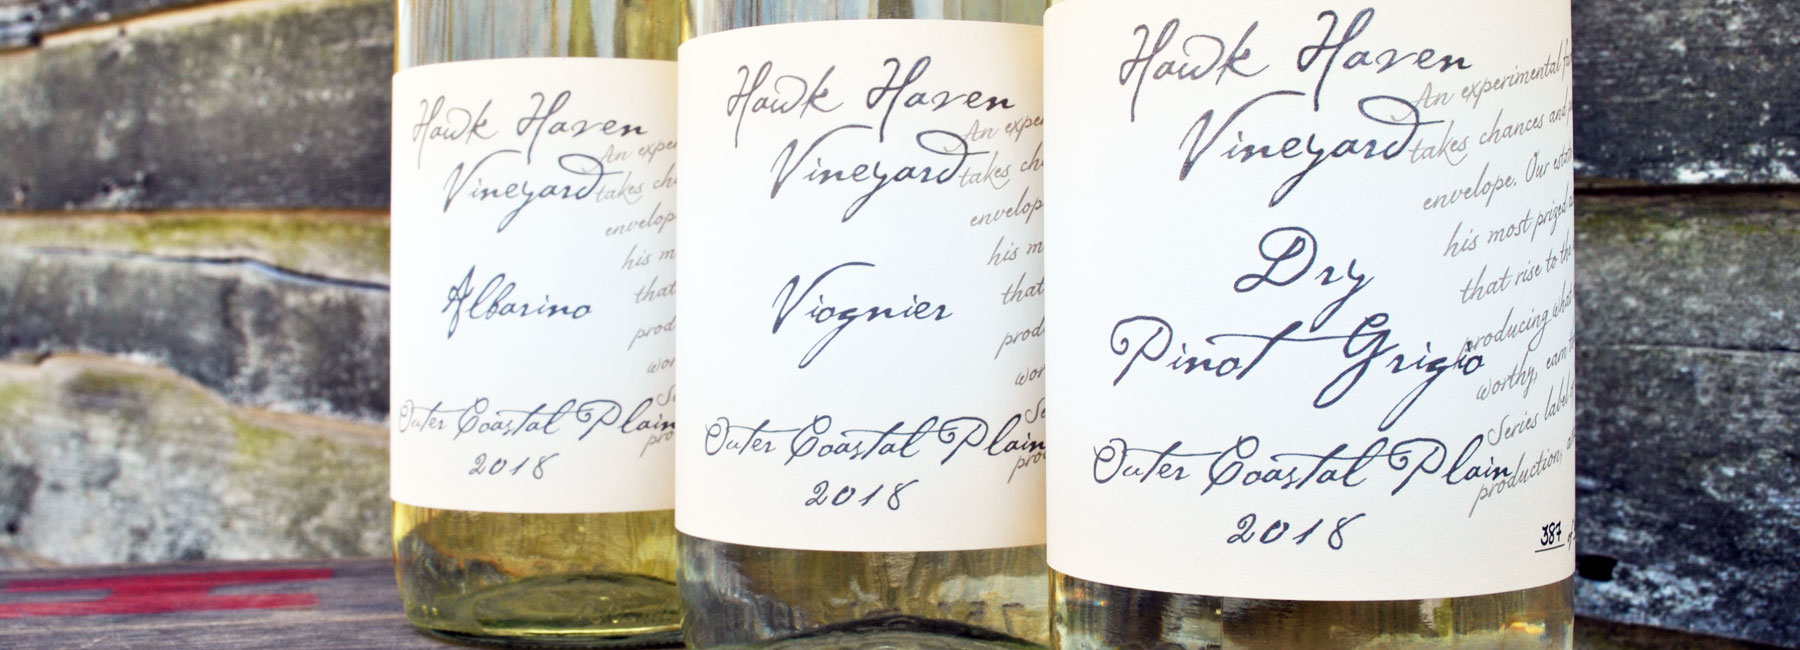 Hawk Haven
Vineyard
An expe
takes ch
envelop
his m
that
prod
wor
Se
pro
Albarino
Outer Coastal Plain
2018
Hawk Haven
Vineyard
An expe
takes ch
envelop
his m
that
prod
wor
Se
pro
Viognier
Outer Coastal Plain
2018
Hawk Haven
Vineyard
An experimental
takes chances and
envelope. Our esta
his most prized
that rise to the
producing what
worthy, earn
Series label
production,
Dry
Pinot Grigio
Outer Coastal Plain
2018
387